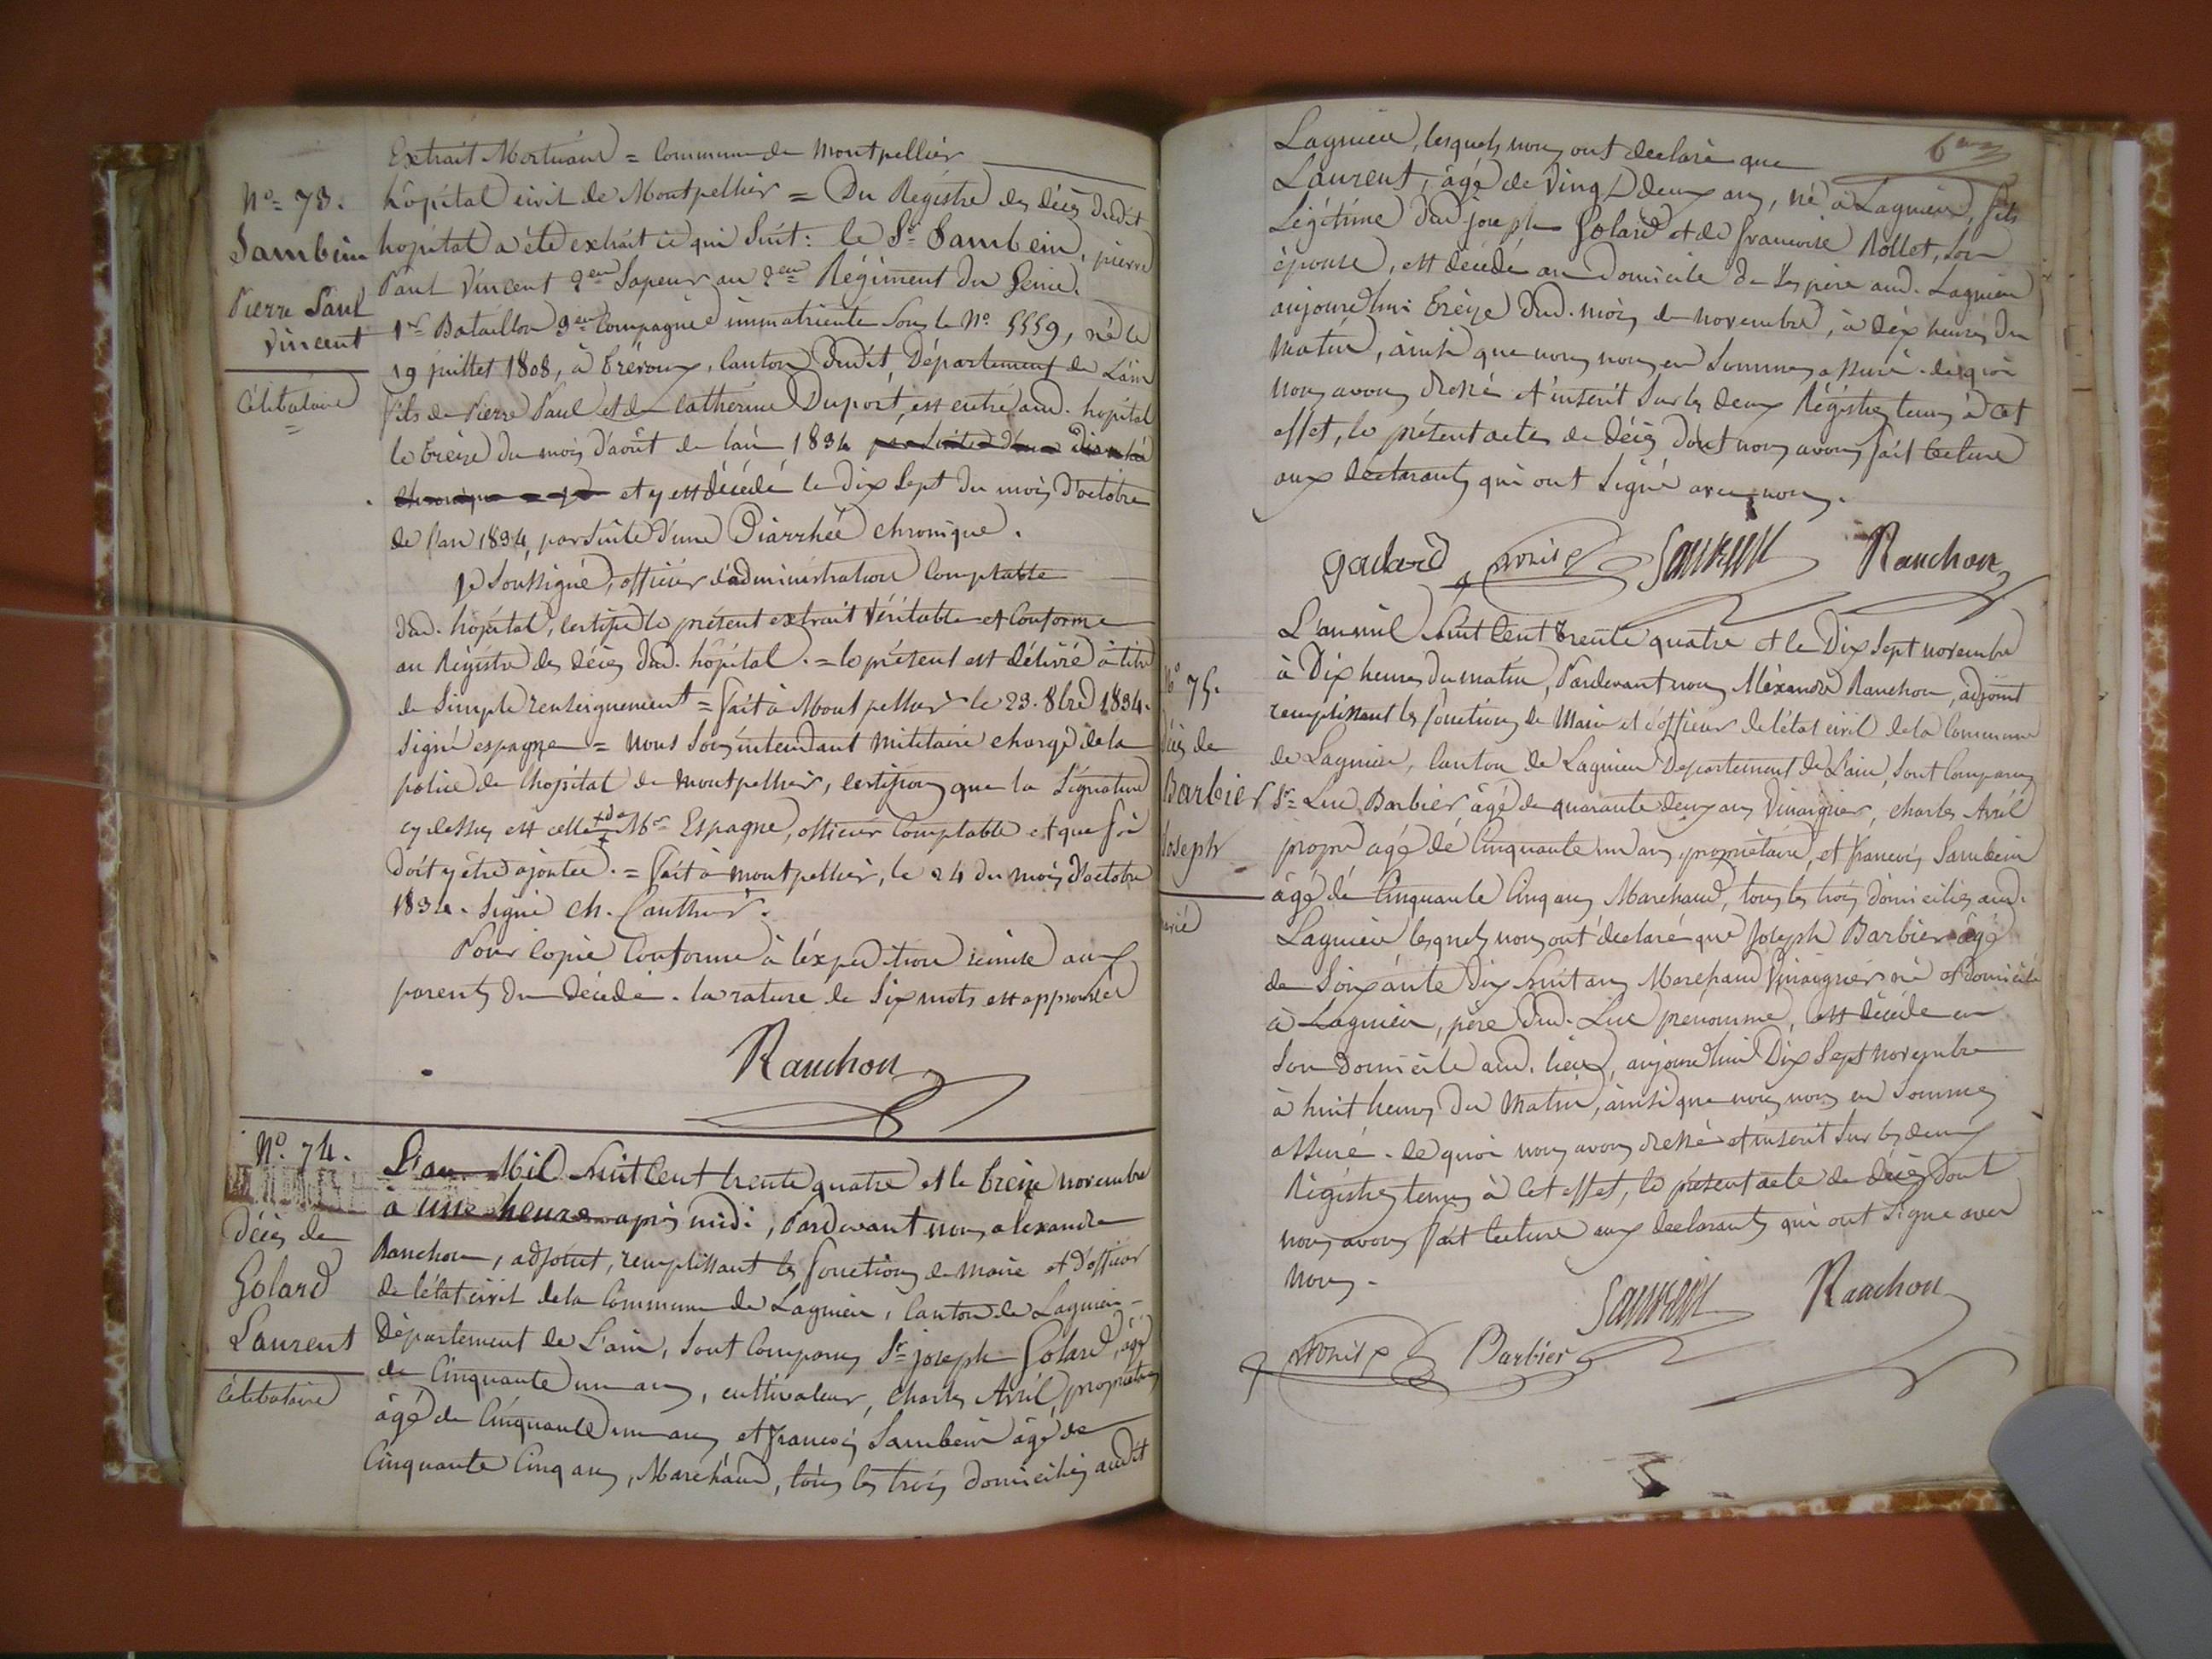 Extrait Mortuaire = Commune de Montpellier
N°= 73.
hôpital civil de Montpellier = Du Régistre des décès dudit
Sambein
hopital a été extrait ce qui suit: le Sr= Sambein, pierre
Paul Vincent 2em Sapeur au 2em Régiment du Génie.
Pierre Paul
Vincent
1er Bataillon 3em Compagnie immatriculé sous le N° 5559, né le
19 juillet 1808, à trévoux, canton dudit, Département de L'ain
Célibataire
fils de Pierre Paul et de Cathérine Duport, est entré aud. hopital
le treize du mois d'août de l'an 1834 par suite d'une diarrhé
chronique et y est décédé le dix sept du mois d'octobre
de l'an 1834, par suite d'une Diarrhée chronique.
je soussigné, officier d'administration Comptable
dud. hôpital, certifie le présent extrait véritable et conforme
au Régistre des décès dud. hôpital. = le présent est délivré à titre
de simple renseignement = fait à Montpellier le 23. 8bre 1834.
signé espagne = Nous sous intendant militaire chargé de la
police de l'hopital de montpellier, certifions que la signature
cy dessus est celle de Mr= Espagne, officier Comptable et que foi
doit y être ajoutée. = fait à montpellier, le 24 du mois d'octobre
1834. signé Ch. Gauthier.
Pour copie conforme à l'éxpédition remise aux
parents du décédé. la rature de six mots est approuvée
Ranchon
N° 74.
L'an Mil huit cent trente quatre et le treize novembre
à une heure après midi, Pardevant nous alexandre
décès de
Ranchon, adjoint, remplissant les fonctions de maire et d'officier
Golard
de l'état civil de la Commune de Lagnieu, Canton de Lagnieu
Laurent
Département de L'ain, sont comparus Sr= joseph Golard, âgé
de Cinquante un ans, cultivateur, Charles Avril, propriétaire
Célibataire
âgé de Cinquante un ans et françois Sambein âgé de
Cinquante cinq ans, Marchand, tous les trois domiciliés audit
Lagnieu, lesquels nous ont déclaré que
Laurent, âgé de vingt deux ans, né à Lagnieu, fils
Légitime dud. joseph Golard et de françoise Rollet, son
épouse, est décédé au Domicile de ses père aud. Lagnieu
aujourd'hui treize dud. mois de novembre, à dix heures du
matin, ainsi que nous nous en sommes assuré. de quoi
nous avons dressé et inscrit sur les deux Régistres tenus à cet
effet, le présent acte de décès dont nous avons fait lecture
aux déclarants qui ont signé avec nous.
golard Avril Sambein Ranchon
L'an mil huit cent trente quatre et le Dix sept novembre
à Dix heures du matin, Pardevant nous Aléxandre Ranchon, adjoint
N° 75.
remplissant les fonctions de Maire et d'officier de l'état civil de la Commune
décès de
de Lagnieu, Canton de Lagnieu Département de L'ain, sont comparus
Barbier
Sr= Luc Barbier âgé de quarante deux ans Vinaigrier, charles Avril
Joseph
propre âgé de Cinquante un ans, propriétaire, et françois Sambein
âgé de Cinquante Cinq ans Marchand, tous les trois domiciliés aud.
marié
Lagnieu lesquels nous ont déclaré que Joseph Barbier âgé
de Soixante Dix huit ans Marchand Vinaigrier né et domicilié
à Lagnieu, père dud. Luc prénommé, est décédé en
son domicile aud. lieu, aujourd'hui Dix Sept Novembre
à huit heures du Matin, ainsi que nous nous en sommes
assuré. de quoi nous avons dressé et inscrit sur les deux
Régistres tenus à cet effet, le présent acte de décès dont
nous avons fait lecture aux déclarants qui ont signé avec
nous.
Sambein Ranchon
Avril Barbier